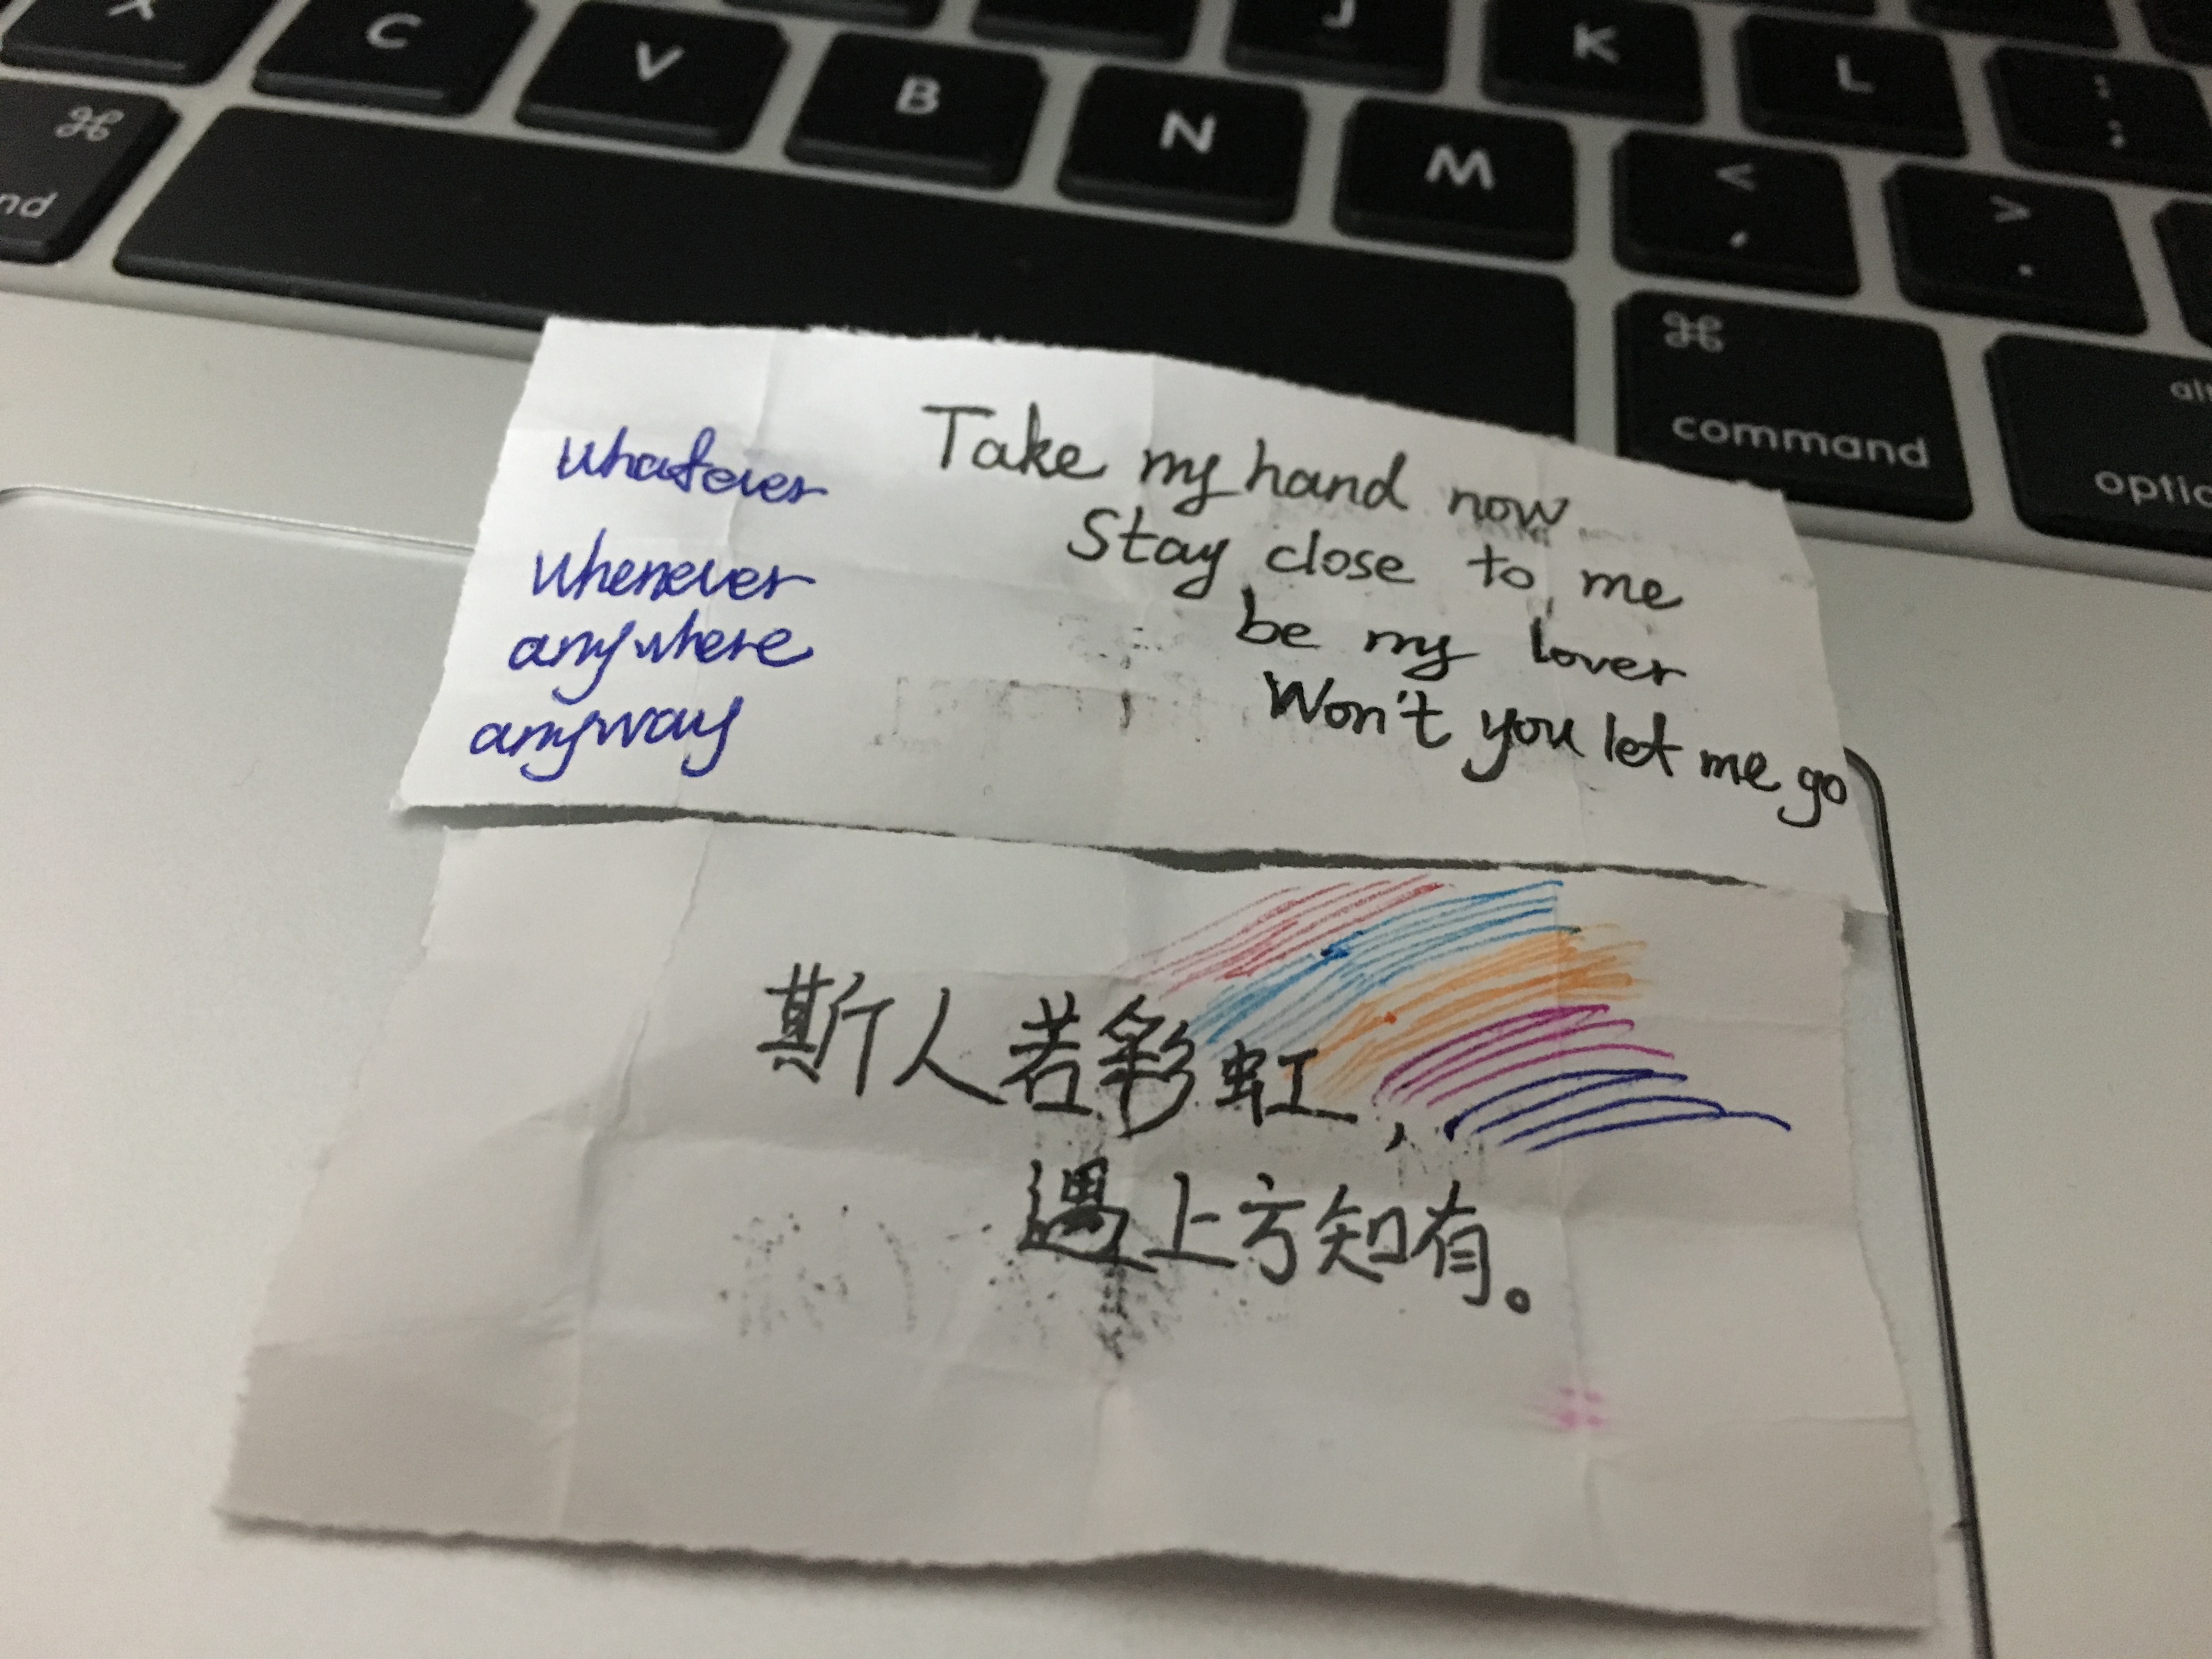 X C V B N M J K L : ;
⌘ < , > .
nd
⌘
command
alt
optio
whatever
whenever
anywhere
anyway
Take my hand now
Stay close to me
be my lover
Won't you let me go
斯人若彩虹，
遇上方知有。